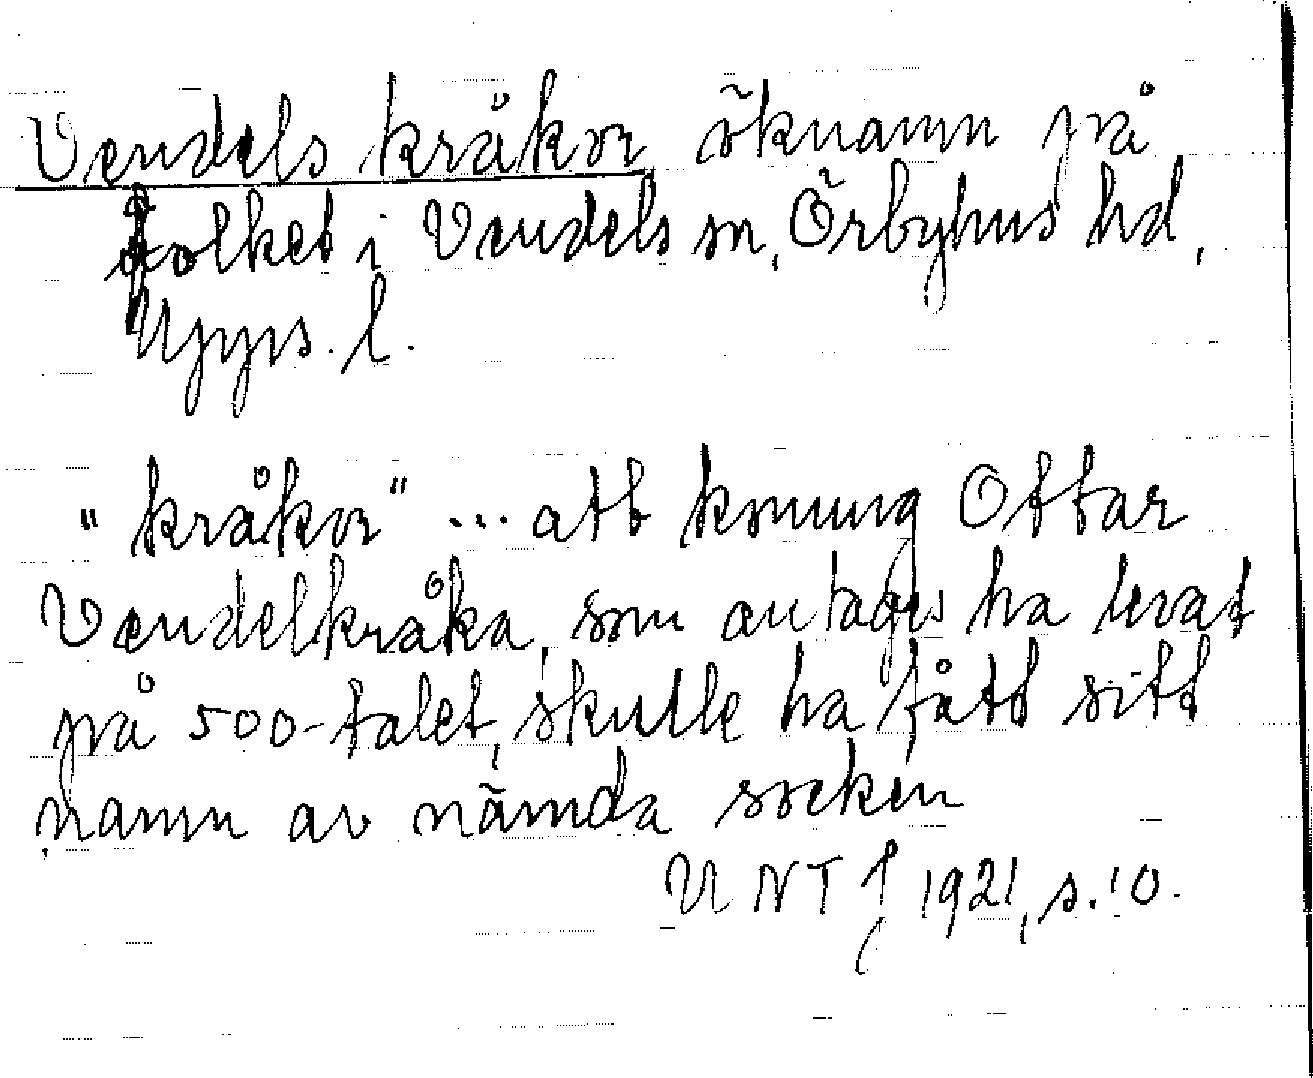 Vendels kråkor öknamn på
folket i Vendels sn, Örbyhus hd,
Upps. l.
"kråkor" ... att konung Ottar
Vendelkråka, som antages ha levat
på 500-talet, skulle ha fått sitt
namn av nämda socken
UNT f 1921, s. 10.